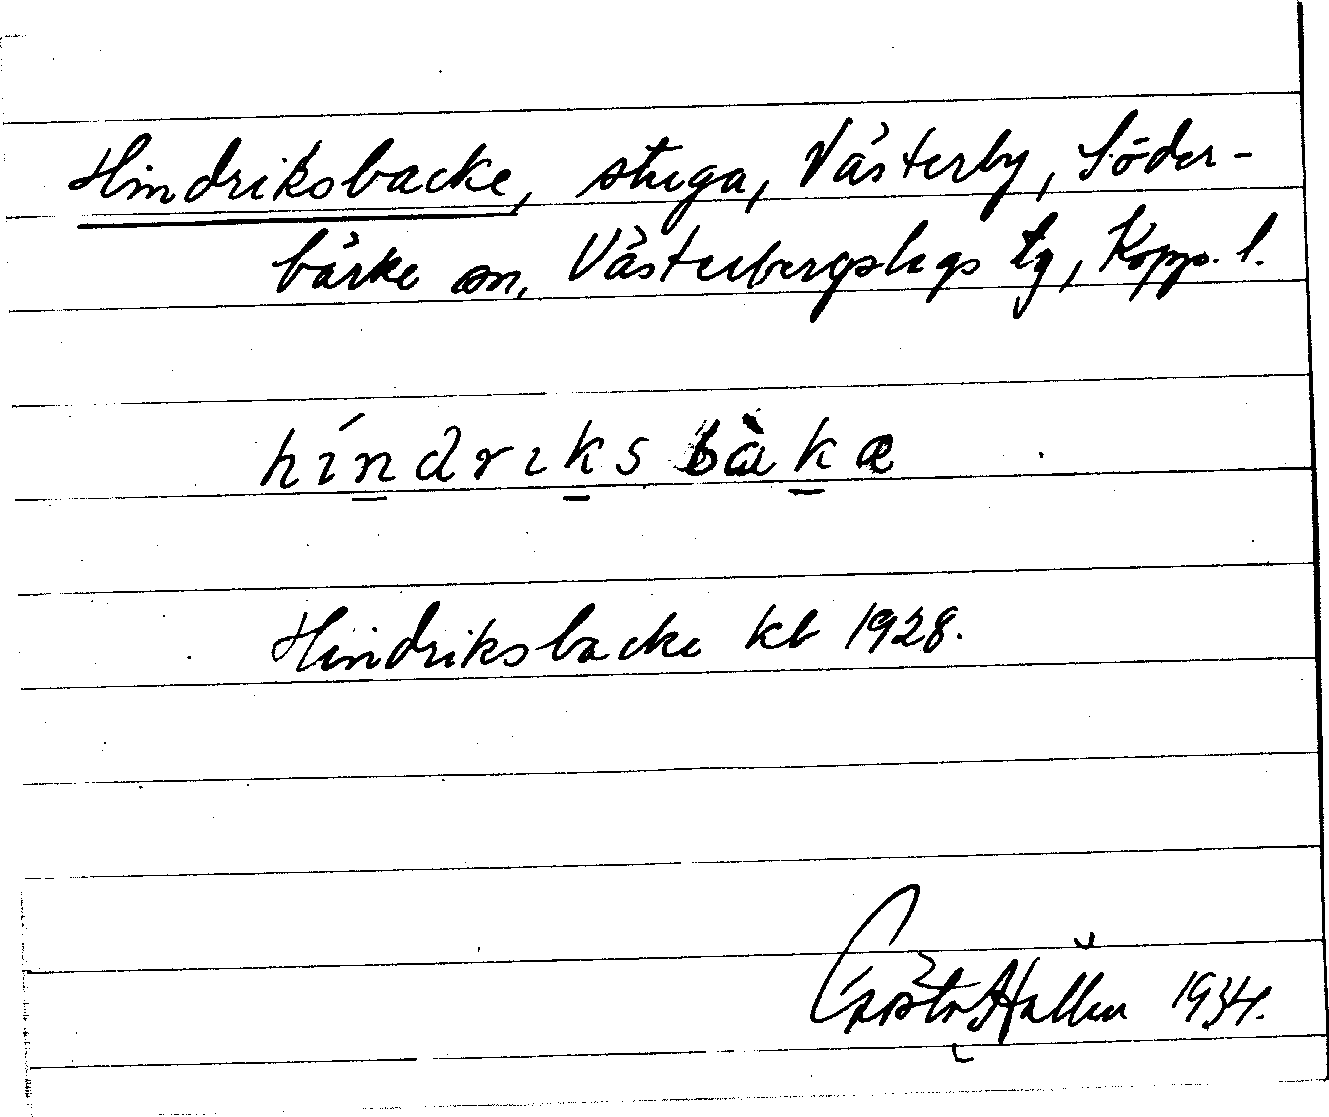 Hindriksbacke, stuga, Västerby, Söder-
bärke sn, Västerbergslags tg, Kopp. l.
híndrıksbàkæ
Hindriksbacke kb 1928.
Gösta Hallén 1934.